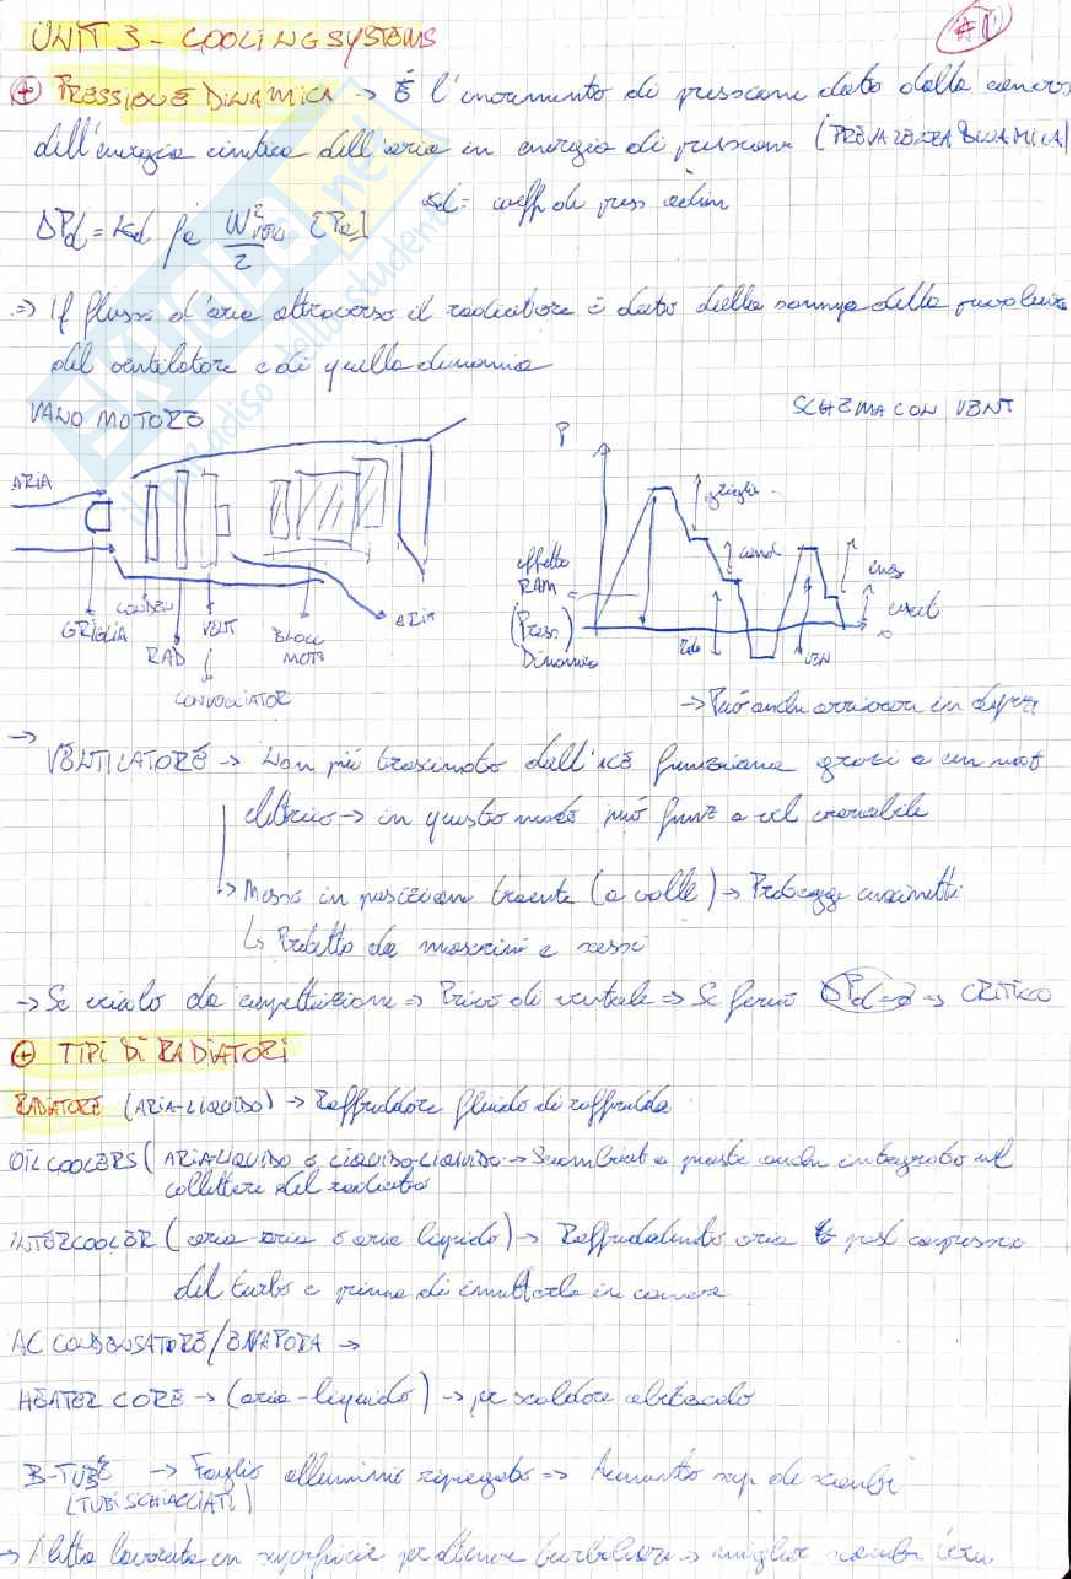 UNIT 3 - COOLING SYSTEMS
#1
⊕ PRESSIONE DINAMICA → È l'incremento di pressione dato dalla convers
dell'energia cinetica dell'aria in energia di pressione (PREVALENZA DINAMICA)
Kd = coeff di press adim
ΔPd = Kd ρa W² / 2 [Pa]
⇒ Il flusso d'aria attraverso il radiatore è dato dalla somma della prevalenza
del ventilatore e di quella dinamica
VANO MOTORE
SCHEMA CON VENT
P
ARIA
griglia
effetto
RAM
cond
(Press.
Dinamica)
Rad
VEN
CONDEN
GRIGLIA
VENT
RAD
BLOCC
MOTO
ARIA
CONVOGLIATOR
→ Può anche arrivare in depr
→ VENTILATORE → Non più trascinato dall'ICE funziona grazie a un mot
elettrico → in questo modo può funz a vel variabile
→ Messo in posizione traente (a valle) → Protegge cuscinetti
↳ Protetto da moscerini e sassi
→ Se veicolo da competizione ⇒ Privo di ventole ⇒ Se fermo ΔPd=0 → CRITICO
⊕ TIPI DI RADIATORI
RADIATORE (ARIA-LIQUIDO) → Raffreddare fluido di raffredda
OIL COOLERS (ARIA-LIQUIDO O LIQUIDO-LIQUIDO → Scambiat a piaste anche integrato nel
collettore del radiatore
INTERCOOLER (aria-aria o aria liquido) → Raffreddando aria post compressa
dal turbo e prima di immetterla in camera
AC CONDENSATORE/EVAPORA →
HEATER CORE → (aria-liquido) → per scaldare abitacolo
B-TUBE → Foglio alluminio ripiegato ⇒ Aumento sup di scambi
(TUBI SCHIACCIATI)
→ Aletta lavorata in superficie per ottenere turbolenza → miglior scambi term